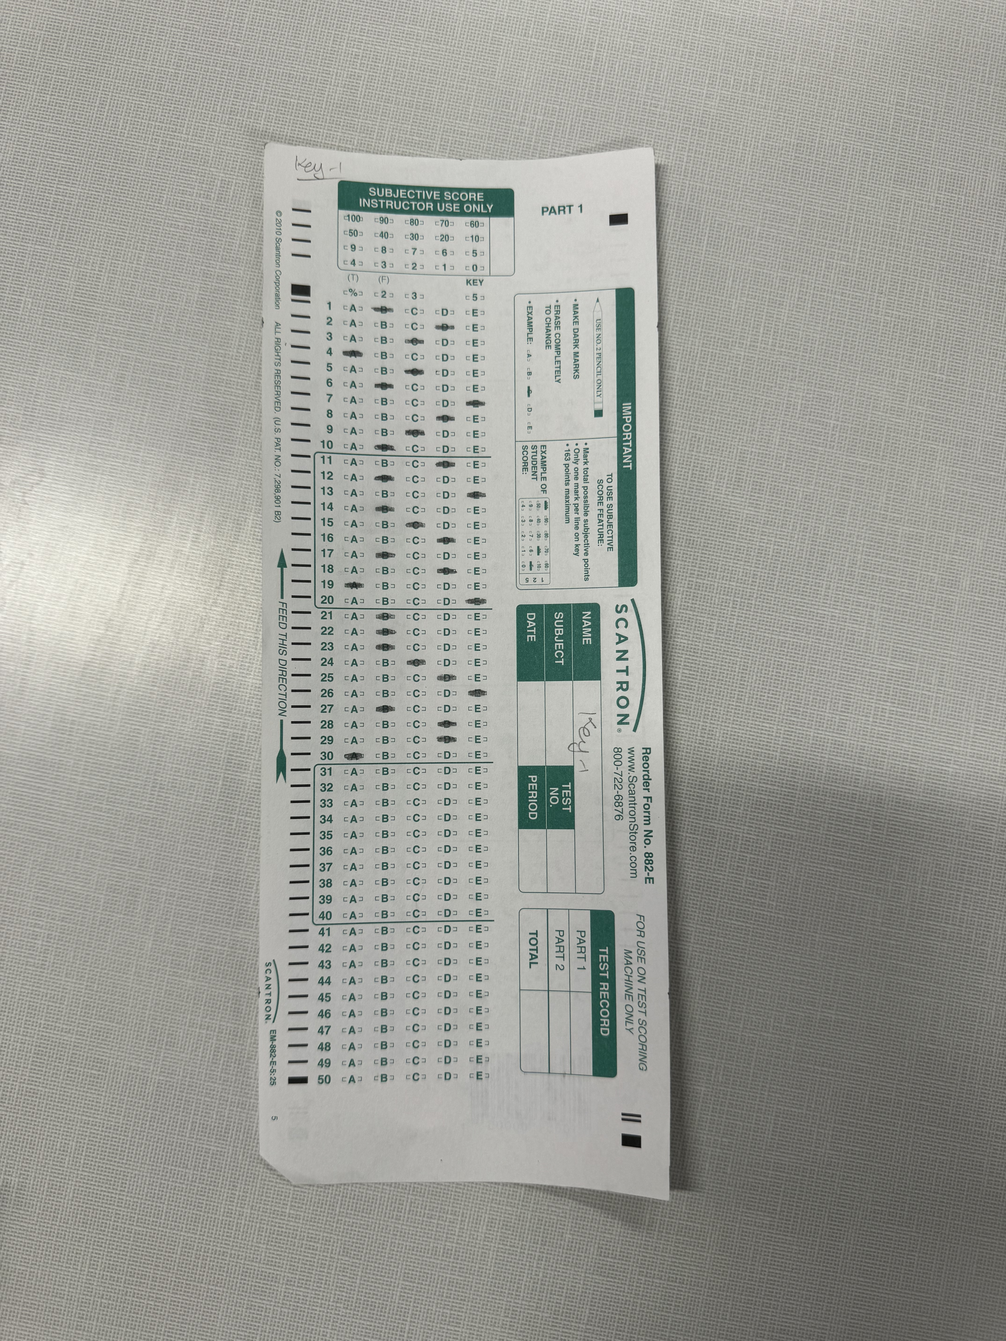 Key-1
SUBJECTIVE SCORE
INSTRUCTOR USE ONLY
100 90 80 70 60
50 40 30 20 10
9 8 7 6 5
4 3 2 1 0
(T) (F) KEY
% 2 3 5
1 A B C D E
2 A B C D E
3 A B C D E
4 A B C D E
5 A B C D E
6 A B C D E
7 A B C D E
8 A B C D E
9 A B C D E
10 A B C D E
11 A B C D E
12 A B C D E
13 A B C D E
14 A B C D E
15 A B C D E
16 A B C D E
17 A B C D E
18 A B C D E
19 A B C D E
20 A B C D E
21 A B C D E
22 A B C D E
23 A B C D E
24 A B C D E
25 A B C D E
26 A B C D E
27 A B C D E
28 A B C D E
29 A B C D E
30 A B C D E
31 A B C D E
32 A B C D E
33 A B C D E
34 A B C D E
35 A B C D E
36 A B C D E
37 A B C D E
38 A B C D E
39 A B C D E
40 A B C D E
41 A B C D E
42 A B C D E
43 A B C D E
44 A B C D E
45 A B C D E
46 A B C D E
47 A B C D E
48 A B C D E
49 A B C D E
50 A B C D E
PART 1
IMPORTANT
USE NO. 2 PENCIL ONLY
• MAKE DARK MARKS
• ERASE COMPLETELY
TO CHANGE
• EXAMPLE: A B D E
TO USE SUBJECTIVE
SCORE FEATURE:
• Mark total possible subjective points
• Only one mark per line on key
• 163 points maximum
EXAMPLE OF
STUDENT
SCORE:
SCANTRON®
Reorder Form No. 882-E
www.ScantronStore.com
800-722-6876
NAME Key-1
SUBJECT TEST NO.
DATE PERIOD
FOR USE ON TEST SCORING
MACHINE ONLY
TEST RECORD
PART 1
PART 2
TOTAL
© 2010 Scantron Corporation ALL RIGHTS RESERVED. (U.S. PAT. NO. 7,298,901 B2)
FEED THIS DIRECTION
SCANTRON. EM-882-E-5:25
5